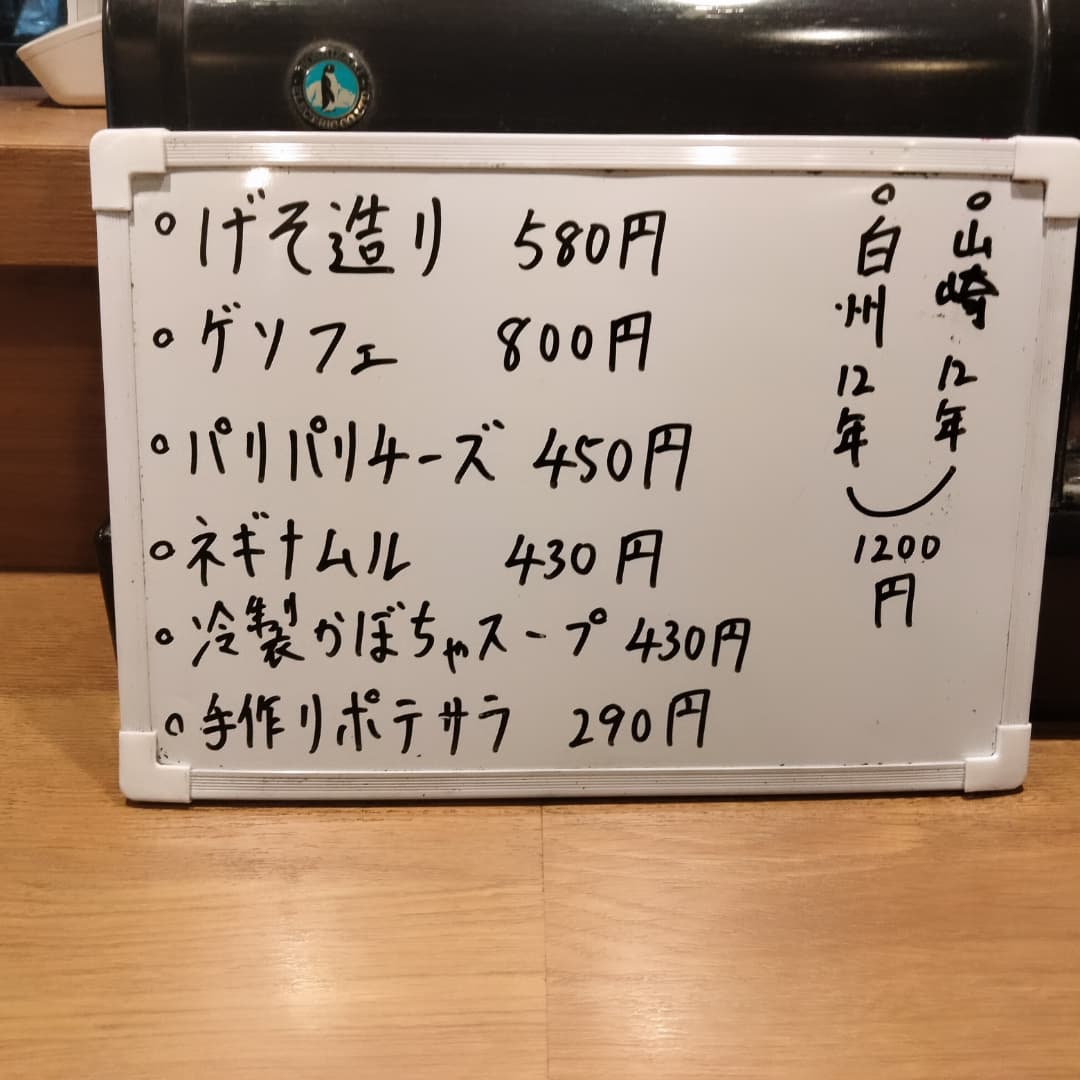 げそ造り 580円
ゲソフェ 800円
パリパリチーズ 450円
ネギナムル 430円
冷製かぼちゃスープ 430円
手作りポテサラ 290円
山崎 12年
白州 12年
1200円